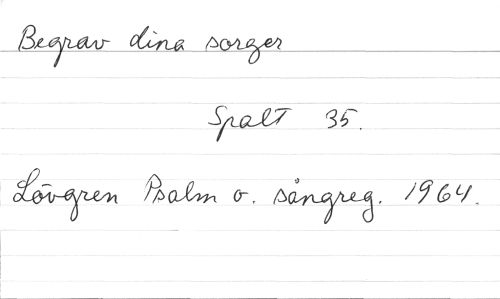 Begrav dina sorger
Spalt 35.
Lövgren Psalm o. sångreg. 1964.